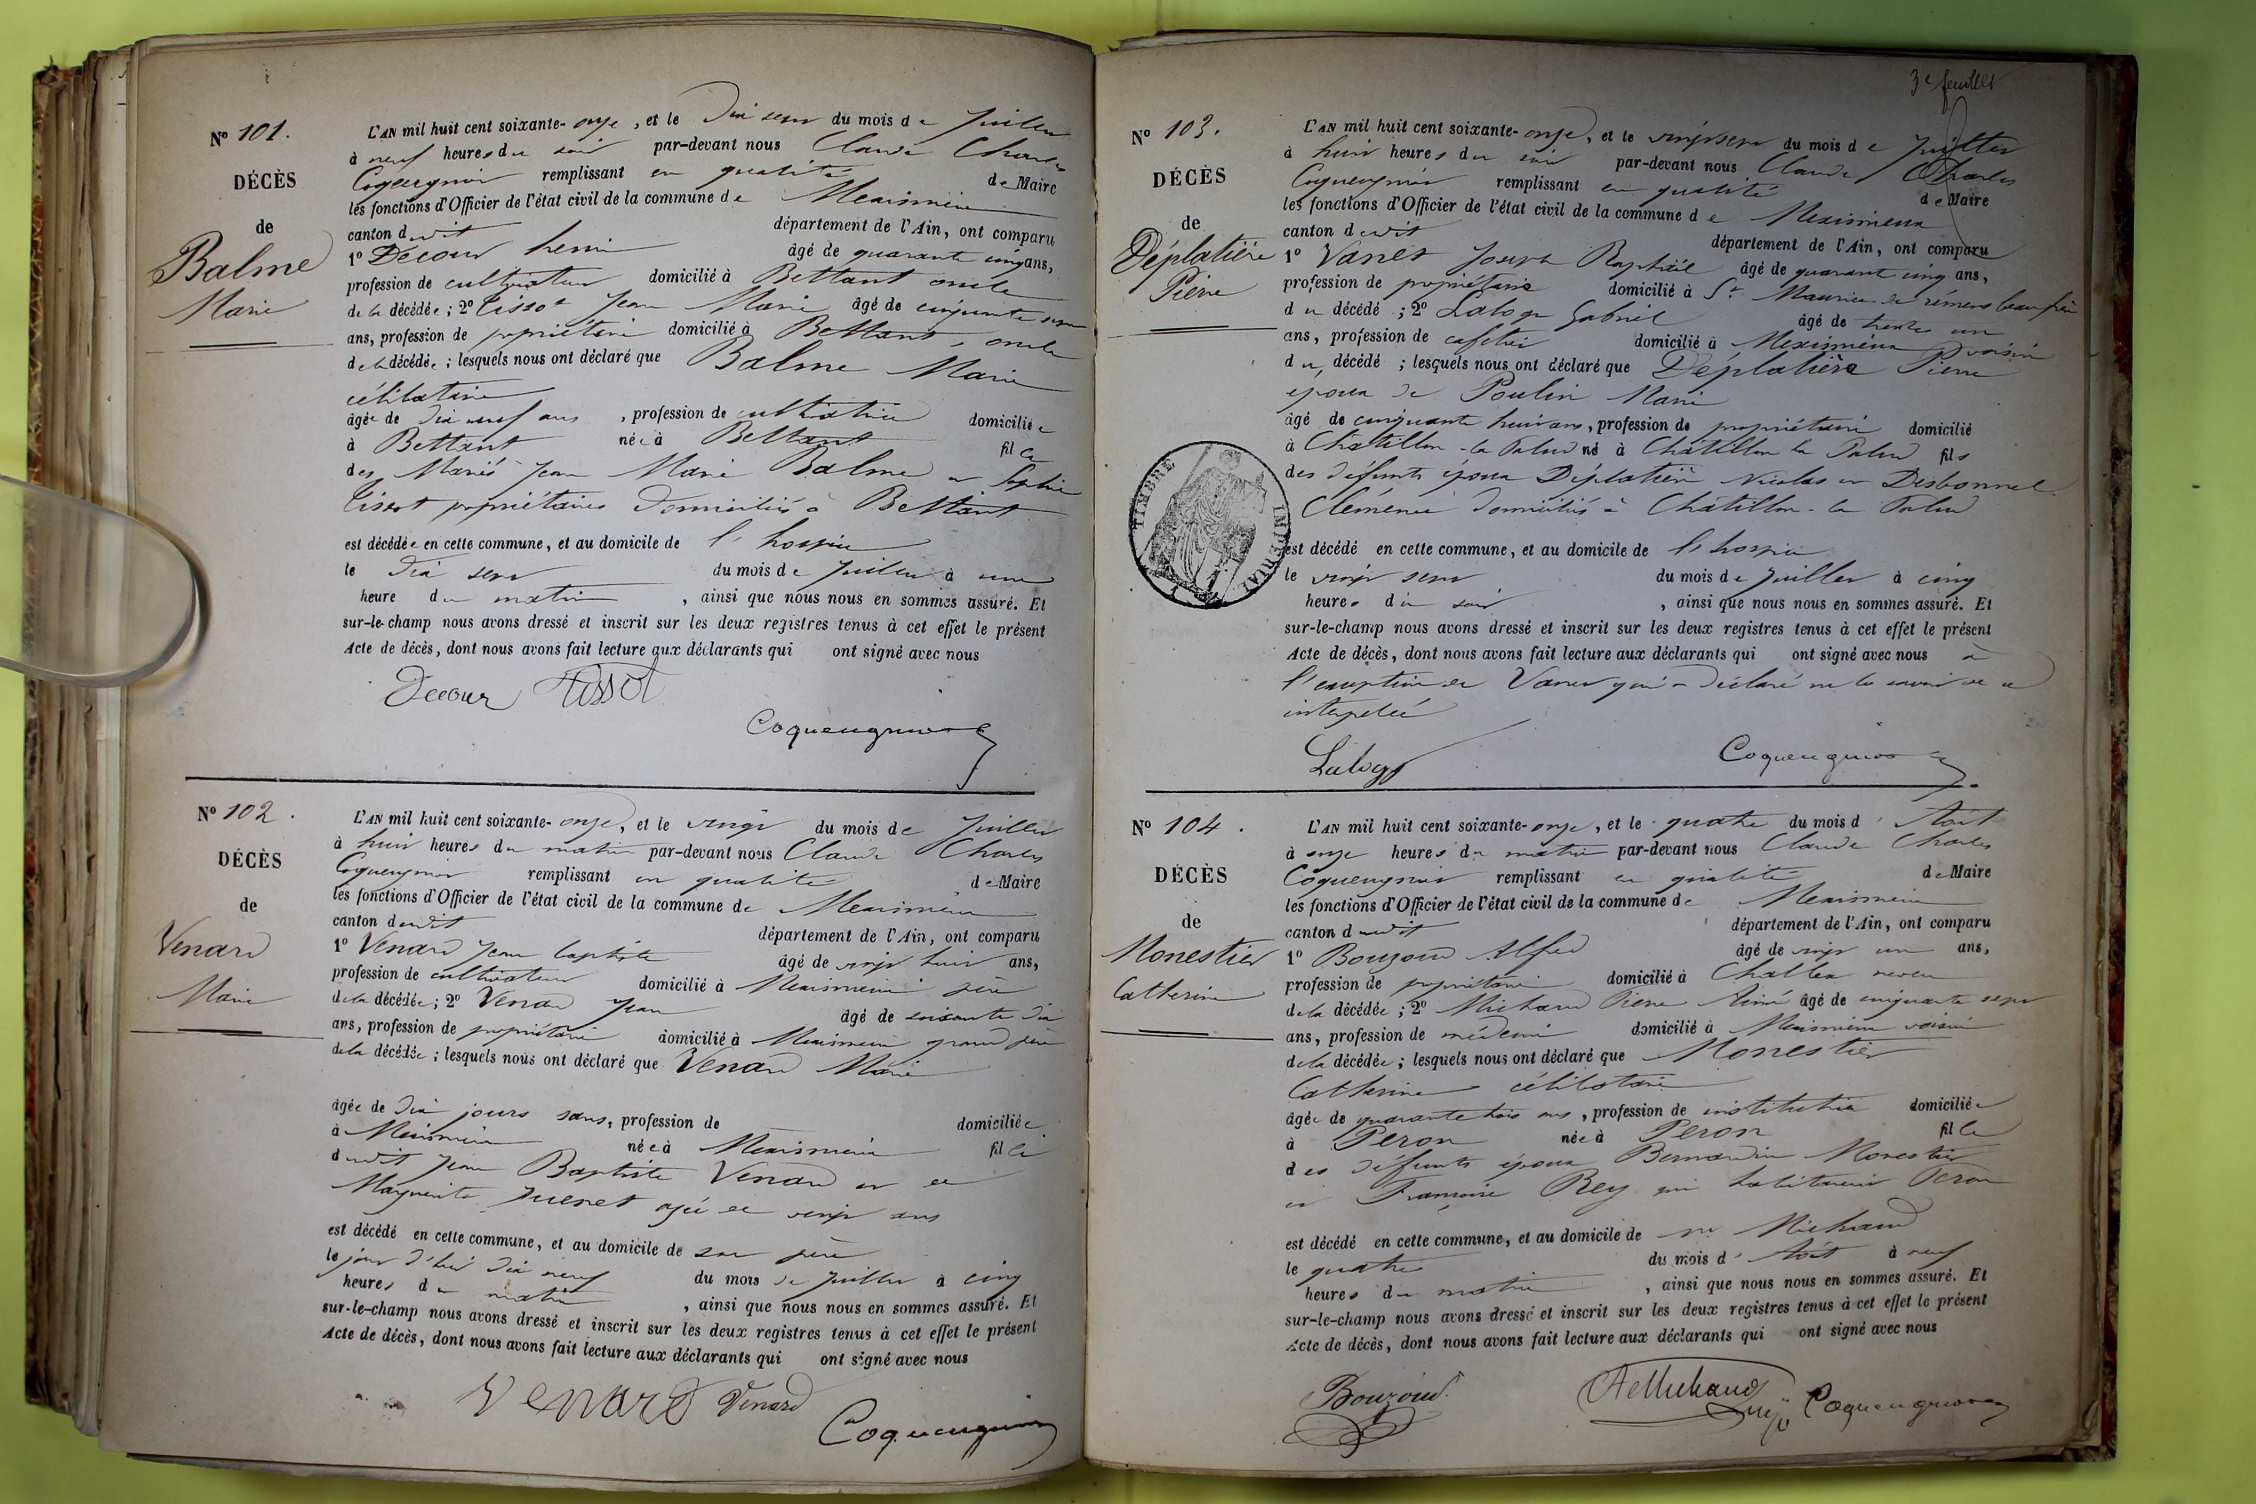 N° 101.
DÉCÈS
de
Balme
Marie
L'AN mil huit cent soixante-onze, et le Dix sept du mois de Juillet
à neuf heures du soir par-devant nous Claude Charles
Coqueugniot remplissant en qualité de Maire
les fonctions d'Officier de l'état civil de la commune de Meximieux
canton dudit département de l'Ain, ont comparu
1° Decour henri âgé de quarante cinq ans,
profession de cultivateur domicilié à Bettant oncle
de la décédée; 2° Tissot Jean Marie âgé de cinquante sept
ans, profession de propriétaire domicilié à Bettant, oncle
de la décédée; lesquels nous ont déclaré que Balme Marie
célibataire
âgée de dix neuf ans, profession de cultivatrice domiciliée
à Bettant née à Bettant fille
des Mariés Jean Marie Balme et Sophie
Tissot propriétaires domiciliés à Bettant
est décédée en cette commune, et au domicile de l'hospice
le dix sept du mois de Juillet à une
heure du matin, ainsi que nous nous en sommes assuré. Et
sur-le-champ nous avons dressé et inscrit sur les deux registres tenus à cet effet le présent
Acte de décès, dont nous avons fait lecture aux déclarants qui ont signé avec nous
Decour Tissot
Coqueugniot
N° 102.
DÉCÈS
de
Venard
Marie
L'AN mil huit cent soixante-onze, et le vingt du mois de Juillet
à huit heures du matin par-devant nous Claude Charles
Coqueugniot remplissant en qualité de Maire
les fonctions d'Officier de l'état civil de la commune de Meximieux
canton dudit département de l'Ain, ont comparu
1° Venard Jean baptiste âgé de vingt huit ans,
profession de cultivateur domicilié à Meximieux père
de la décédée; 2° Venard Jean âgé de soixante dix
ans, profession de propriétaire domicilié à Meximieux grand père
de la décédée; lesquels nous ont déclaré que Venard Marie
âgée de dix jours sans, profession de domiciliée
à Meximieux née à Meximieux fille
dudit Jean Baptiste Venard et de
Marguerite Juenet agée de vingt ans
est décédé en cette commune, et au domicile de son père
le jour d'hier dix neuf du mois de Juillet à cinq
heures du matin, ainsi que nous nous en sommes assuré. Et
sur-le-champ nous avons dressé et inscrit sur les deux registres tenus à cet effet le présent
Acte de décès, dont nous avons fait lecture aux déclarants qui ont signé avec nous
Venard Venard
Coqueugniot
3e feuillet
N° 103.
DÉCÈS
de
Déplatière
Pierre
L'AN mil huit cent soixante-onze, et le vingt sept du mois de Juillet
à huit heures du soir par-devant nous Claude Charles
Coqueugniot remplissant en qualité de Maire
les fonctions d'Officier de l'état civil de la commune de Meximieux
canton dudit département de l'Ain, ont comparu
1° Vanet Joseph Raphaël âgé de quarant cinq ans,
profession de propriétaire domicilié à St Maurice de rémens beau frère
du décédé; 2° Laloge Gabriel âgé de trente un
ans, profession de cafetier domicilié à Meximieux voisin
du décédé; lesquels nous ont déclaré que Déplatière Pierre
époux de Poulin Marie
âgé de cinquante huit ans, profession de propriétaire domicilié
à Châtillon-la-Palud né à Châtillon la Palud fils
des défunts époux Déplatière Nicolas et Desbonnel
Clémence domiciliés à Châtillon-la Palud
TIMBRE IMPERIAL
est décédé en cette commune, et au domicile de l'hospice
le vingt sept du mois de Juillet à cinq
heures du soir, ainsi que nous nous en sommes assuré. Et
sur-le-champ nous avons dressé et inscrit sur les deux registres tenus à cet effet le présent
Acte de décès, dont nous avons fait lecture aux déclarants qui ont signé avec nous à
l'exception de Vanet qui a déclaré ne le savoir de ce
interpelé
Laloge
Coqueugniot
N° 104.
DÉCÈS
de
Monestier
Catherine
L'AN mil huit cent soixante-onze, et le quatre du mois d'Aout
à onze heures du matin par-devant nous Claude Charles
Coqueugniot remplissant en qualité de Maire
les fonctions d'Officier de l'état civil de la commune de Meximieux
canton dudit département de l'Ain, ont comparu
1° Bouzoud Alfred âgé de vingt un ans,
profession de propriétaire domicilié à Challex neveu
de la décédée; 2° Michaud Pierre Aimé âgé de cinquante sept
ans, profession de médecin domicilié à Meximieux voisin
de la décédée; lesquels nous ont déclaré que Monestier
Catherine célibataire
âgée de quarante trois ans, profession de institutrice domiciliée
à Péron née à Péron fille
des défunts époux Bernardin Monestier
et Françoise Rey qui habitaient Péron
est décédé en cette commune, et au domicile de mr Michaud
le quatre du mois d'Août à neuf
heures du matin, ainsi que nous nous en sommes assuré. Et
sur-le-champ nous avons dressé et inscrit sur les deux registres tenus à cet effet le présent
Acte de décès, dont nous avons fait lecture aux déclarants qui ont signé avec nous
Bouzoud AeMichaud Coqueugniot